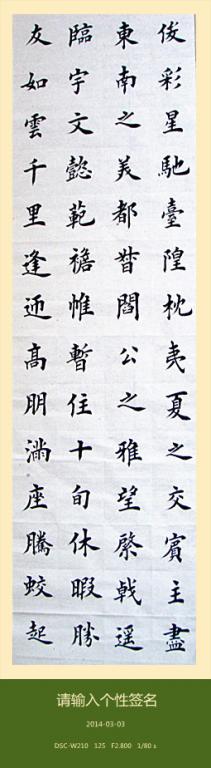 俊彩星馳臺隍枕夷夏之交賓主盡
東南之美都督閻公之雅望棨戟遥
臨宇文懿範襜帷暫住十旬休暇勝
友如雲千里逢迎高朋滿座騰蛟起
请输入个性签名
2014-03-03
DSC-W210 125 F2.800 1/80 s